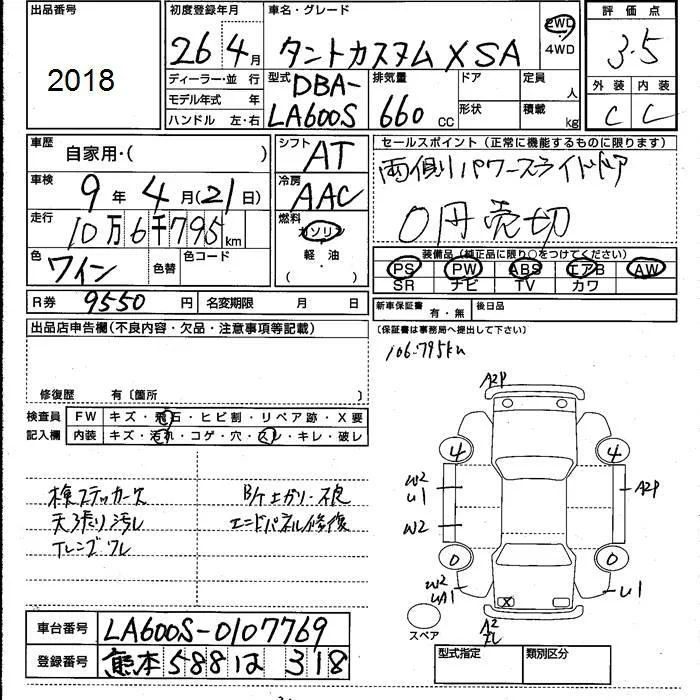 出品番号
2018
初度登録年月
26年4月
車名・グレード
タントカスタム X SA
2WD
4WD
評価点
3.5
外装 内装
C C
ディーラー・並行
モデル年式 年
ハンドル 左・右
型式
DBA-
LA600S
排気量
660 cc
ドア
形状
定員 人
積載 kg
車歴
自家用・( )
車検
9年4月(21日)
走行
10万6千795km
色
ワイン
色替
色コード
シフト
AT
冷房
AAC
燃料
ガソリン
軽・油
( )
セールスポイント(正常に機能するものに限ります)
両側パワースライドドア
0円売切
装備品(純正品に限り○をつけてください)
PS PW ABS エアB AW
SR ナビ TV カワ
R券 9550円
名変期限 月 日
新車保証書 有・無
後日品
(保証書は事務局へ提出して下さい)
106.795km
出品店申告欄(不良内容・欠品・注意事項等記載)
修復歴 有〔箇所 〕
検査員
記入欄
FW キズ・飛石・ヒビ割・リペア跡・X要
内装 キズ・汚れ・コゲ・穴・スレ・キレ・破レ
検ステッカー欠
天張り汚レ
Tレンズワレ
エンドパネル修復
A2P
4 4
W2
U1
W2
A2P
0 0
W2
U1
X
A2
スペア
車台番号 LA600S-0107769
登録番号 熊本 588 は 318
型式指定
類別区分